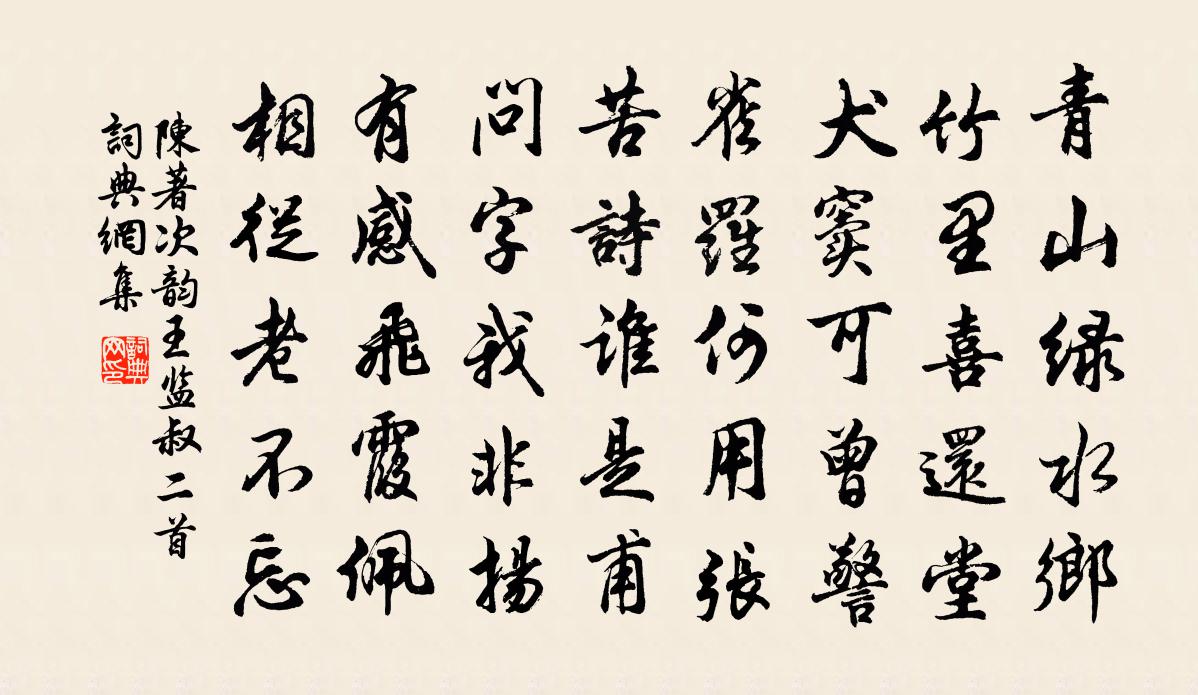 青山绿水鄉
竹里喜還堂
犬竇可曾警
雀羅何用張
苦詩誰是甫
問字我非揚
有感飛霞佩
相從老不忘
陳著次韵王监叔二首
詞典網集
詞典网印